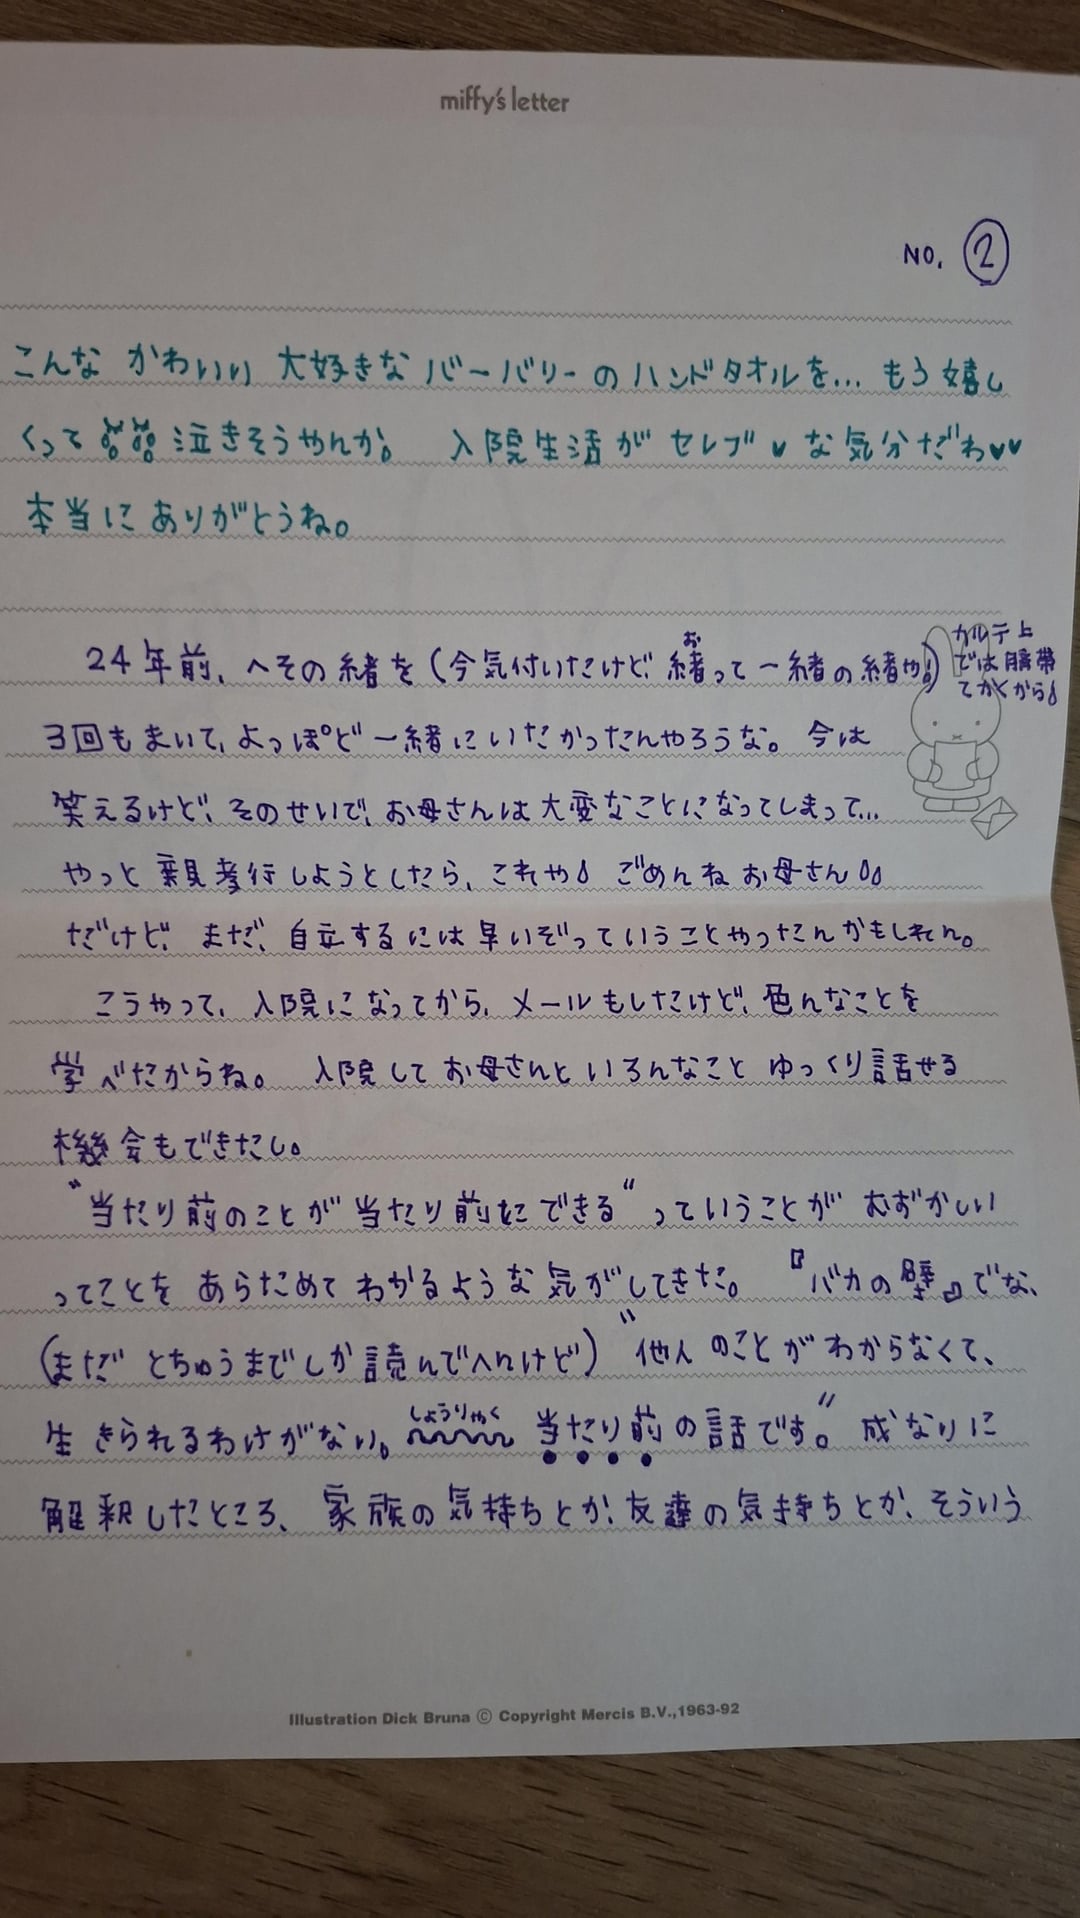 miffy's letter
NO. ②
こんな かわいい 大好きな バーバリーの ハンドタオルを... もう 嬉し
くって 泣きそうやんか。 入院生活が セレブ♥な気分だわ♥♥
本当に ありがとうね。
24年前、へその緒を(今気付いたけど、緒って一緒の緒や!)
お
カルテ上
では臍帯
てかくから
3回もまいて、よっぽど一緒にいたかったんやろうな。今は
笑えるけど、そのせいで、お母さんは大変なことになってしまって...
やっと親孝行しようとしたら、これや ごめんねお母さん
だけど、まだ、自立するには早いぞっていうことやったんかもしれん。
こうやって、入院になってから、メールもしたけど、色んなことを
学べたからね。 入院してお母さんといろんなこと ゆっくり話せる
機会もできたし。
"当たり前のことが当たり前にできる"っていうことが むずかしい
ってことを あらためて わかるような気がしてきた。 『バカの壁』でな、
(まだ とちゅうまでしか読んでへんけど) "他人のことがわからなくて、
生きられるわけがない。しょうりゃく 当たり前の話です。" 成なりに
解釈したところ、家族の気持ちとか、友達の気持ちとか、そういう
Illustration Dick Bruna © Copyright Mercis B.V.,1963-92